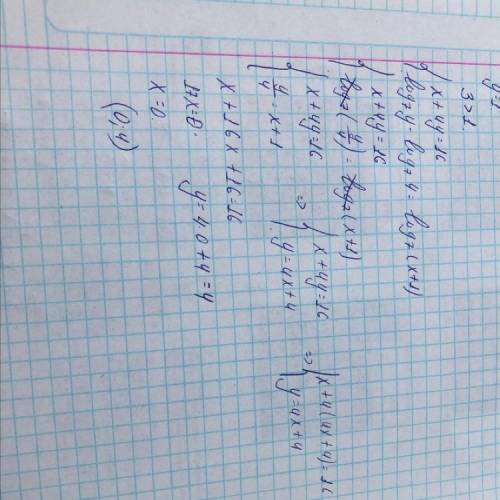 y=1
3>1.
{ x+4y=16
{ log₇ y - log₇ 4 = log₇ (x+1)
{ x+4y=16
{ log₇ (y/4) = log₇ (x+1)
{ x+4y=16 => { x+4y=16 => { x+4(4x+4)=16
{ y/4 = x+1 { y=4x+4 { y=4x+4
x+16x+16=16
17x=0. y=4·0+4=4
x=0.
(0;4)